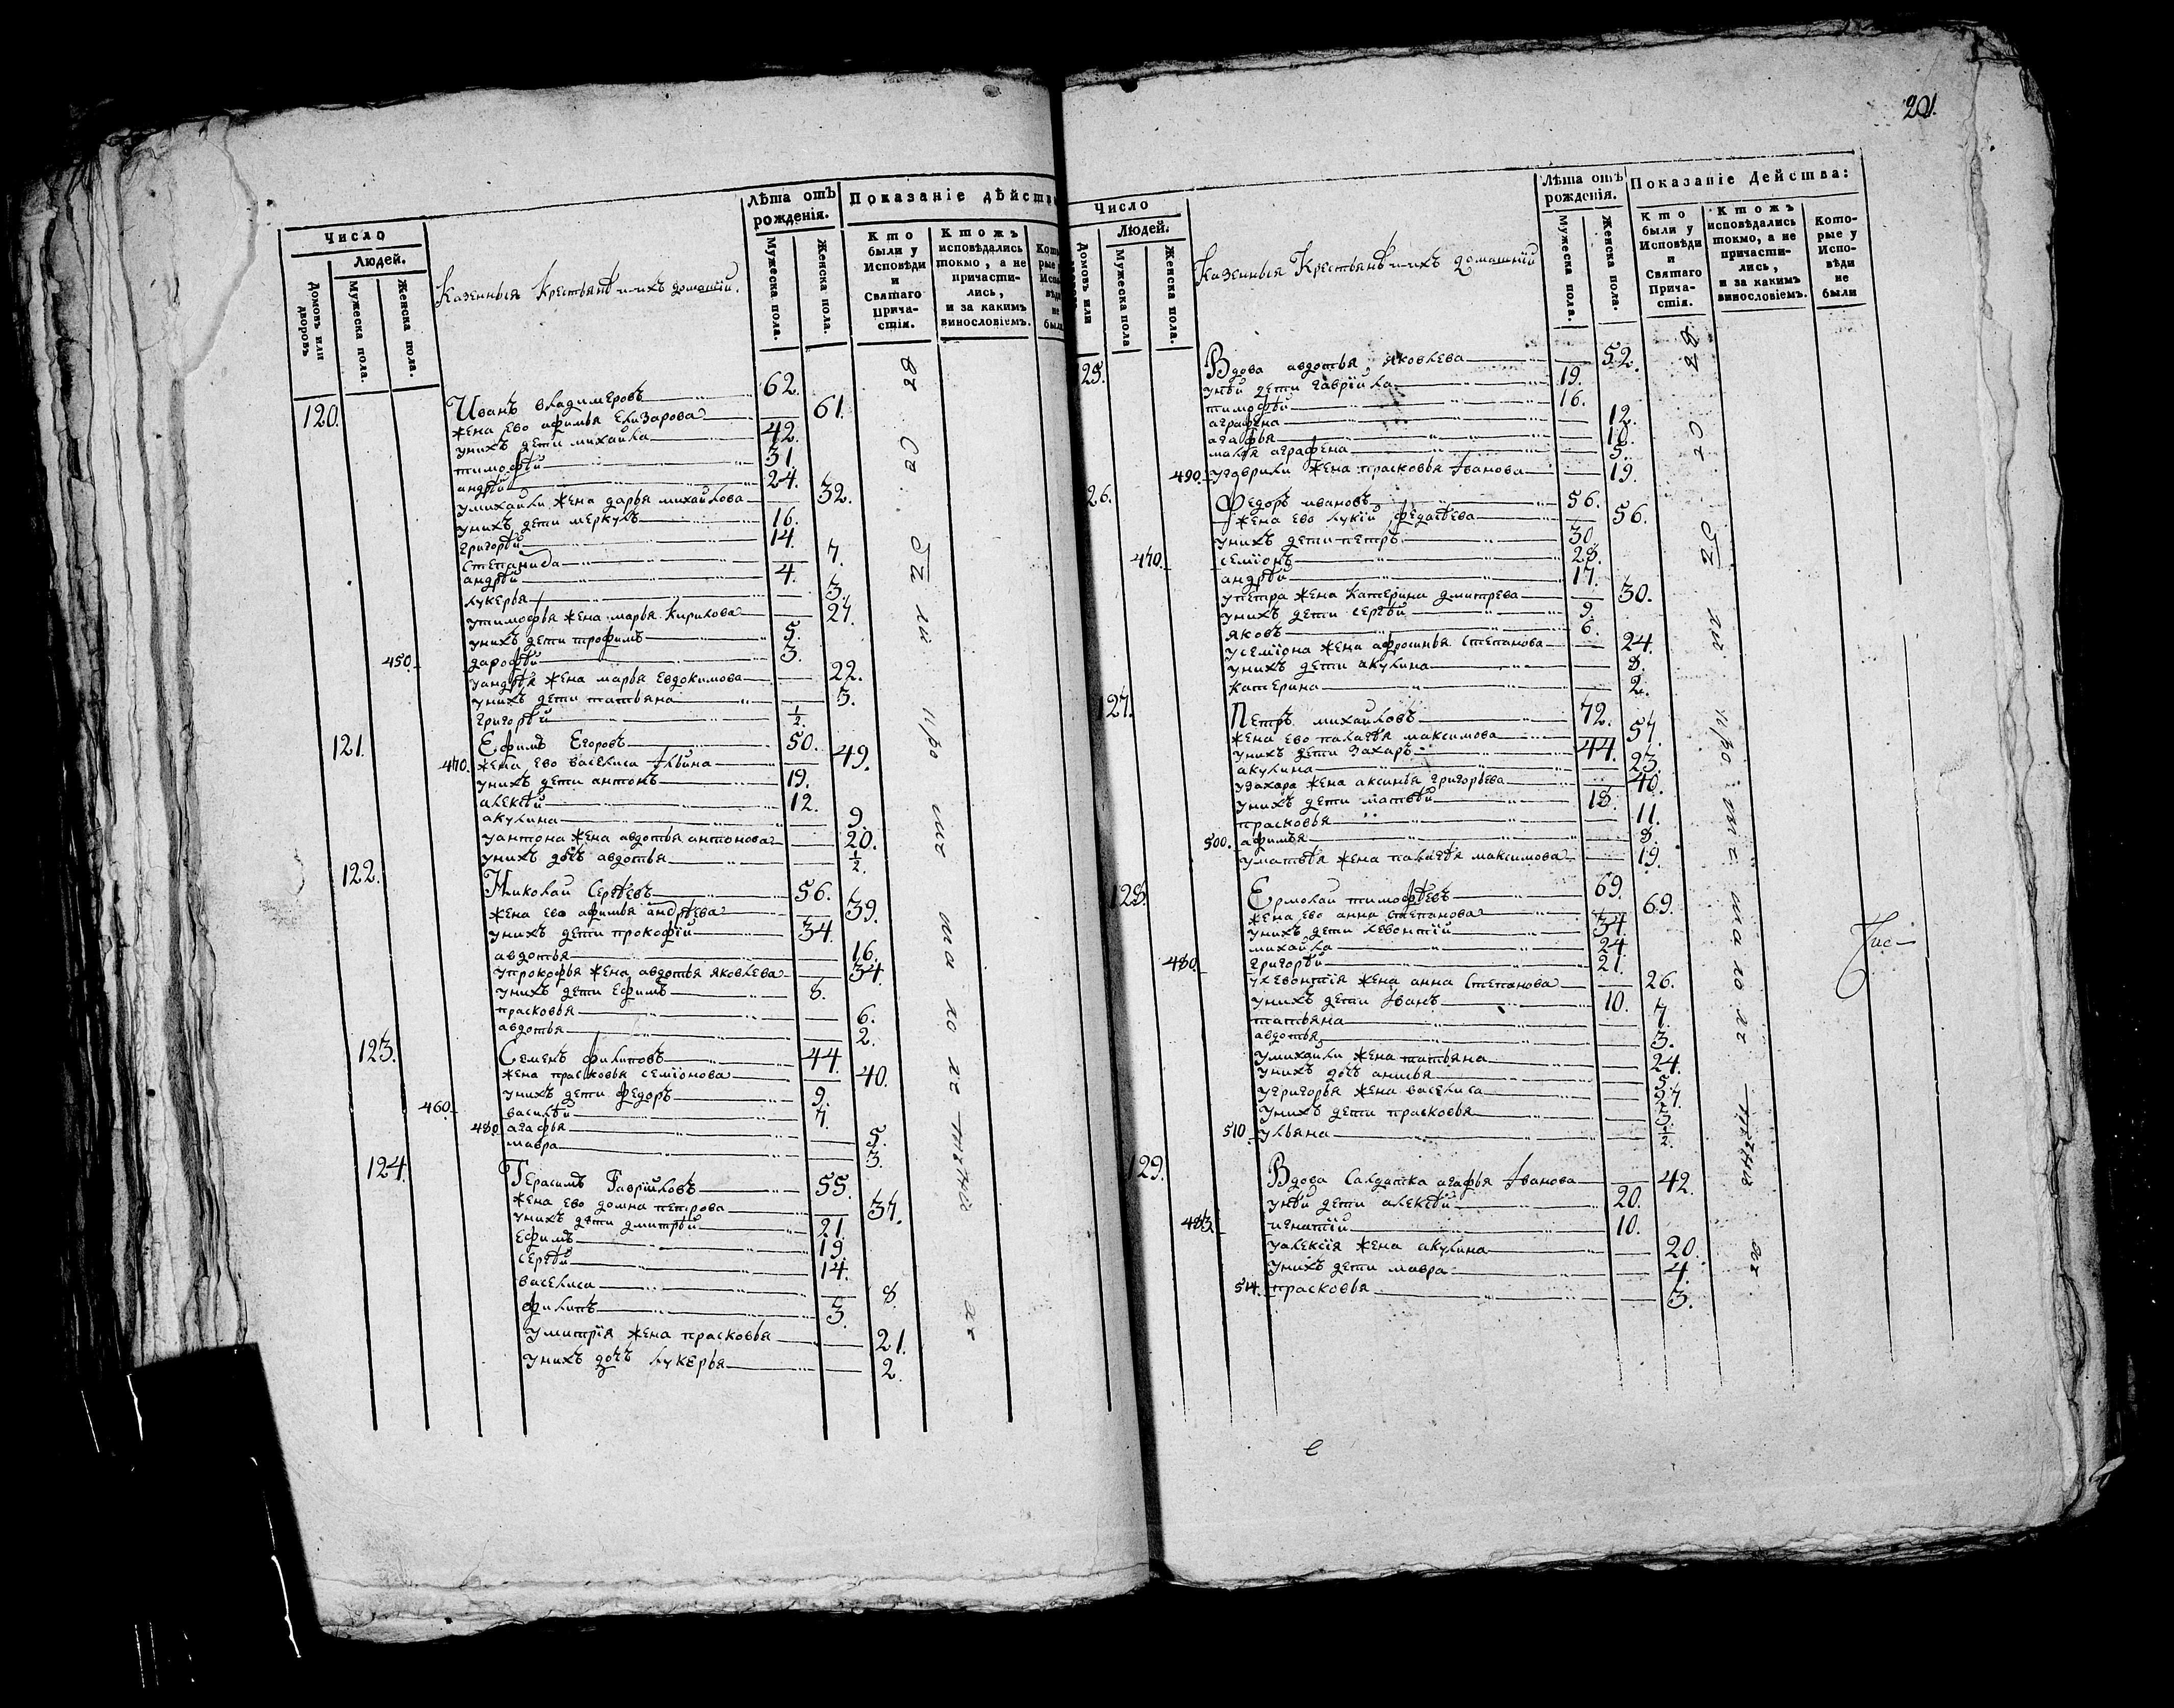 201.
Число
Людей.
Домовъ или дворовъ
Мужеска пола.
Женска пола.
Казенныя Крестьянѣ и ихъ домашнїи.
Лѣта отъ рожденія.
Мужеска пола.
Женска пола.
Показаніе дѣйств
Кто были у Исповѣди и Святаго Прича- стія.
Ктожъ исповѣдались токмо, а не причасти- лись, и за какимъ винословіемъ.
120. Иванъ владимеровъ 62.
жена ево афимья Елизарова 61.
унихъ дети михайла 42.
тимофѣй 31.
андрѣй 24.
умихайли жена дарья михайлова 32.
унихъ дети меркулъ 16.
григорѣй 14.
степанида 7.
андрѣй 4.
лукерья 3.
утимофѣя жена марья Кирилова 27.
унихъ дети трофимъ 5.
450. дарофѣй 3.
уандрѣя жена марья Евдокимова 22.
унихъ дети татьяна 3.
григорѣй ½.
121. Ефимъ Егоровъ 50.
470. жена ево василиса Ильина 49.
унихъ дети антонъ 19.
алексѣй 12.
акулина 9.
уантона жена авдотья антонова 20.
унихъ дочъ авдотья ½.
122. Николай Сергѣевъ 56.
жена ево афимья андрѣева 39.
унихъ дети прокофїй 34.
авдотья 16.
упрокофья жена авдотья яковлева 34.
унихъ дети Ефимъ 8.
прасковья 6.
авдотья 2.
123. Семенъ филиповъ 44.
жена прасковья семїонова 40.
унихъ дети федоръ 9.
460. василѣй 7.
480. агафья 5.
мавра 3.
124. Герасимъ Гаврїиловъ 55.
жена ево домна петрова 37.
унихъ дети дмитрѣй 21.
Ефимъ 19.
сергѣй 14.
василиса 8.
филипъ 3.
умитрїя жена прасковья 21.
унихъ дочъ лукерья 2.
Число
Людей.
Домовъ или
Мужеска пола
Женска пола.
Казенныя Крестьянѣ и ихъ домашнїи
Лѣта отъ рожденія.
Мужеска пола.
Женска пола.
Показаніе Действа:
Кто были у Исповѣди и Святаго Прича- стія.
Ктожъ исповѣдались токмо, а не причасти- лись, и за какимъ винословіемъ.
Кото- рые у Испо- вѣди не были
25. Вдова авдотья яковлева 52.
унѣй дети гаврїила 19.
тимофѣй 16.
аграфена 12.
агафья 10.
малая аграфена 5.
490. угаврили жена прасковья Иванова 19.
26. Федоръ ивановъ 56.
жена ево лукїи федосѣева 56.
унихъ дети петръ 30.
470. семїонъ 28.
андрѣй 17.
упетра жена катерина дмитрева 30.
унихъ дети сергѣй 9.
яковъ 6.
усемїона жена афросинья степанова 24.
унихъ дети акулина 8.
катерина 2.
127. Петръ михайловъ 72.
жена ево палагѣя максимова 57.
унихъ дети захаръ 44.
акулина 23.
узахара жена аксинья григорьева 40.
унихъ дети матвѣй 18.
прасковья 11.
500. афимья 8.
уматвѣя жена палагѣя максимова 19.
128. Ермолай тимофѣевъ 69.
жена ево анна степанова 69.
унихъ дети левонтїй 34.
михайла 24.
480. григорѣй 21.
улевонтїя жена анна степанова 26.
унихъ дети Иванъ 10.
татьяна 7.
авдотья 3.
умихайли жена татьяна 24.
унихъ дочъ анисья 5.
угригорья жена василиса 27.
унихъ дети прасковья 3.
510. ульяна ½.
129. Вдова Салдатка агафья Иванова 42.
унѣй дети алексѣй 20.
483. игнатїй 10.
уалексїя жена акулина 20.
унихъ дети мавра 4.
514. прасковья 3.